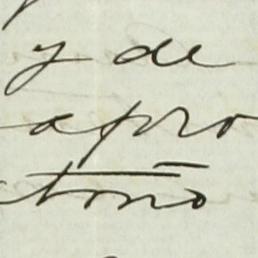 y de
apro
toño